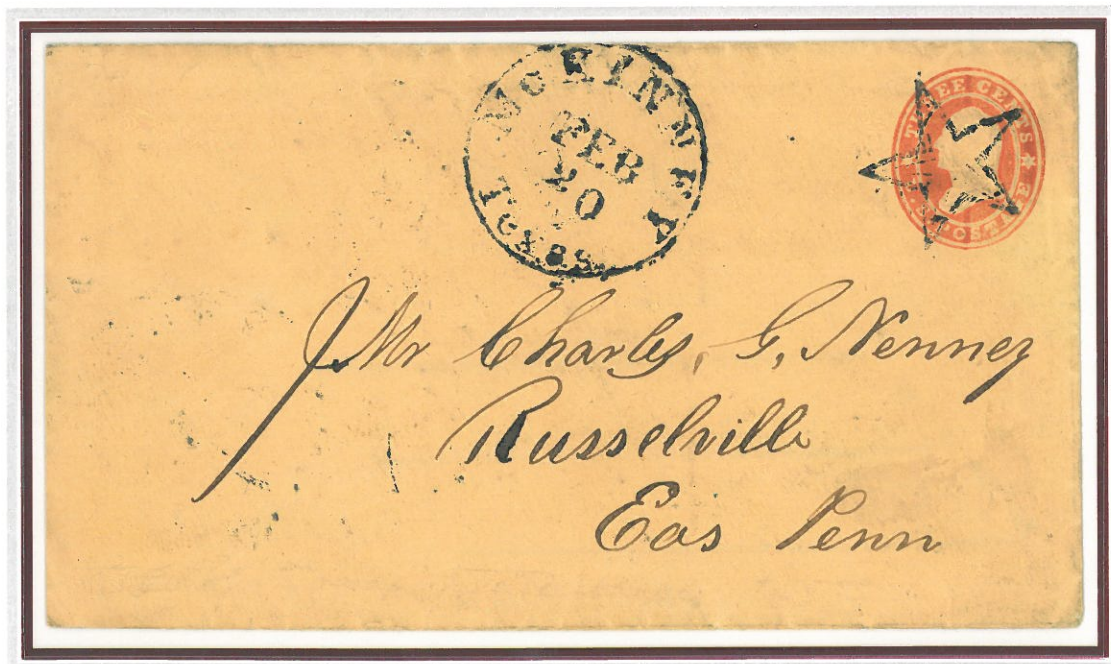 McKINNEY
FEB
20
Texas
THREE CENTS
U.S. POSTAGE
Mr Charles, G, Nenney
Russelville
Eas Penn